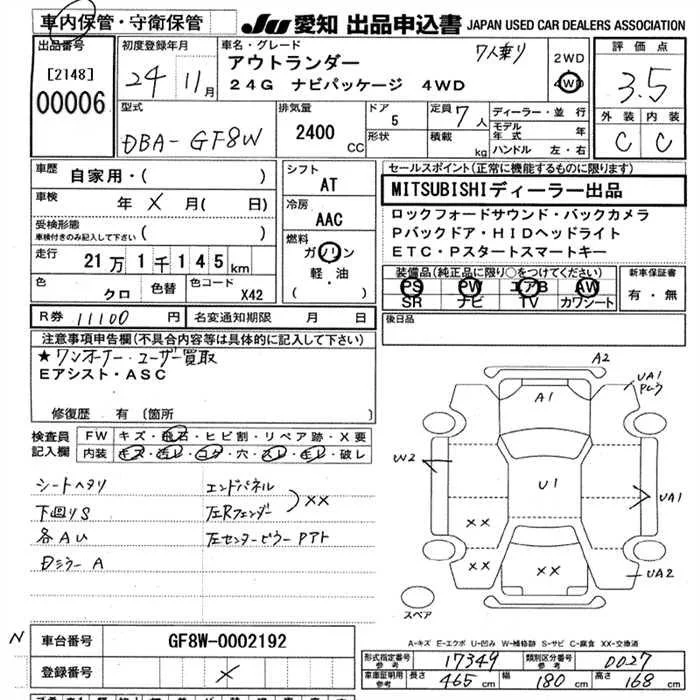 車内保管・守衛保管
JU 愛知 出品申込書 JAPAN USED CAR DEALERS ASSOCIATION
出品番号
[2148]
00006
初度登録年月
24年11月
車名・グレード
7人乗り
アウトランダー
24G ナビパッケージ 4WD
2WD
4WD
評価点
3.5
外装 内装
C C
型式
DBA-GF8W
排気量
2400 CC
ドア 5
形状
定員 7人
積載 kg
ディーラー・並行
モデル年式 年
ハンドル 左・右
車歴
自家用・( )
車検
年 × 月( 日)
受検形態
車検付きのみ記入して下さい ( )
走行
21万1千145km
色
クロ
色替
色コード
X42
シフト
AT
冷房
AAC
燃料
ガソリン
軽・油
( )
セールスポイント(正常に機能するものに限ります)
MITSUBISHIディーラー出品
ロックフォードサウンド・バックカメラ
Pバックドア・HIDヘッドライト
ETC・Pスタートスマートキー
装備品(純正品に限り○をつけてください)
PS PW エアB AW
SR ナビ TV カワシート
新車保証書
有・無
R券 11100 円
名変通知期限 月 日
後日品
注意事項申告欄(不具合内容等は具体的に記入して下さい)
★ワンオーナー・ユーザー買取
Eアシスト・ASC
修復歴 有 〔箇所 〕
検査員記入欄
FW キズ・飛石・ヒビ割・リペア跡・X要
内装 キズ・汚レ・コゲ・穴・スレ・モレ・破レ
シートヘタリ
下回りS
各AU
Dミラー A
エンドパネル
左Rフェンダー
XX
左センターピラーPアト
A2
UA1
A1
W2
U1
UA1
XX
XX
XX
UA2
スペア
A-キズ E-エクボ U-凹み W-補修跡 S-サビ C-腐食 XX-交換済
N
車台番号
GF8W-0002192
登録番号
×
形式指定番号 参考
17349
類別区分番号 参考
0027
車庫証明用 参考
長さ 465cm
幅 180cm
高さ 168cm